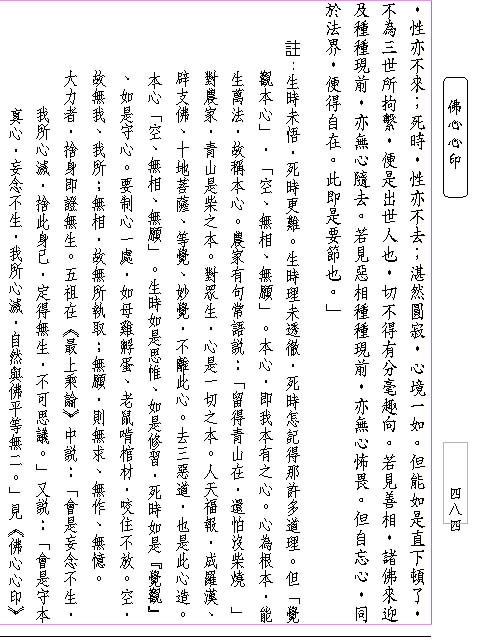 佛心心印
四八四
・性亦不來；死時，性亦不去；湛然圓寂，心境一如。但能如是直下頓了，
不為三世所拘繫，便是出世人也，切不得有分毫趣向。若見善相，諸佛來迎
及種種現前，亦無心隨去。若見惡相種種現前，亦無心怖畏。但自忘心，同
於法界，便得自在。此即是要節也。」
註：生時未悟，死時更難。生時理未透徹，死時怎記得那許多道理。但「覺
觀本心」，「空、無相、無願」。本心，即我本有之心。心為根本，能
生萬法，故稱本心。農家有句常語說：「留得青山在，還怕沒柴燒」
對農家，青山是柴之本。對眾生，心是一切之本。人天福報，成羅漢、
辟支佛、十地菩薩、等覺、妙覺，不離此心。去三惡道，也是此心造。
本心「空、無相、無願」。生時如是思惟、如是修習，死時如是『覺觀』
、如是守心。要制心一處，如母雞孵蛋、老鼠啃棺材，咬住不放。空，
故無我、我所；無相，故無所執取；無願，則無求、無作、無憶。
大力者，捨身即證無生。五祖在《最上乘論》中說：「會是妄念不生，
我所心滅，捨此身已，定得無生，不可思議。」又說：「會是守本
真心，妄念不生，我所心滅，自然與佛平等無二。」見《佛心心印》